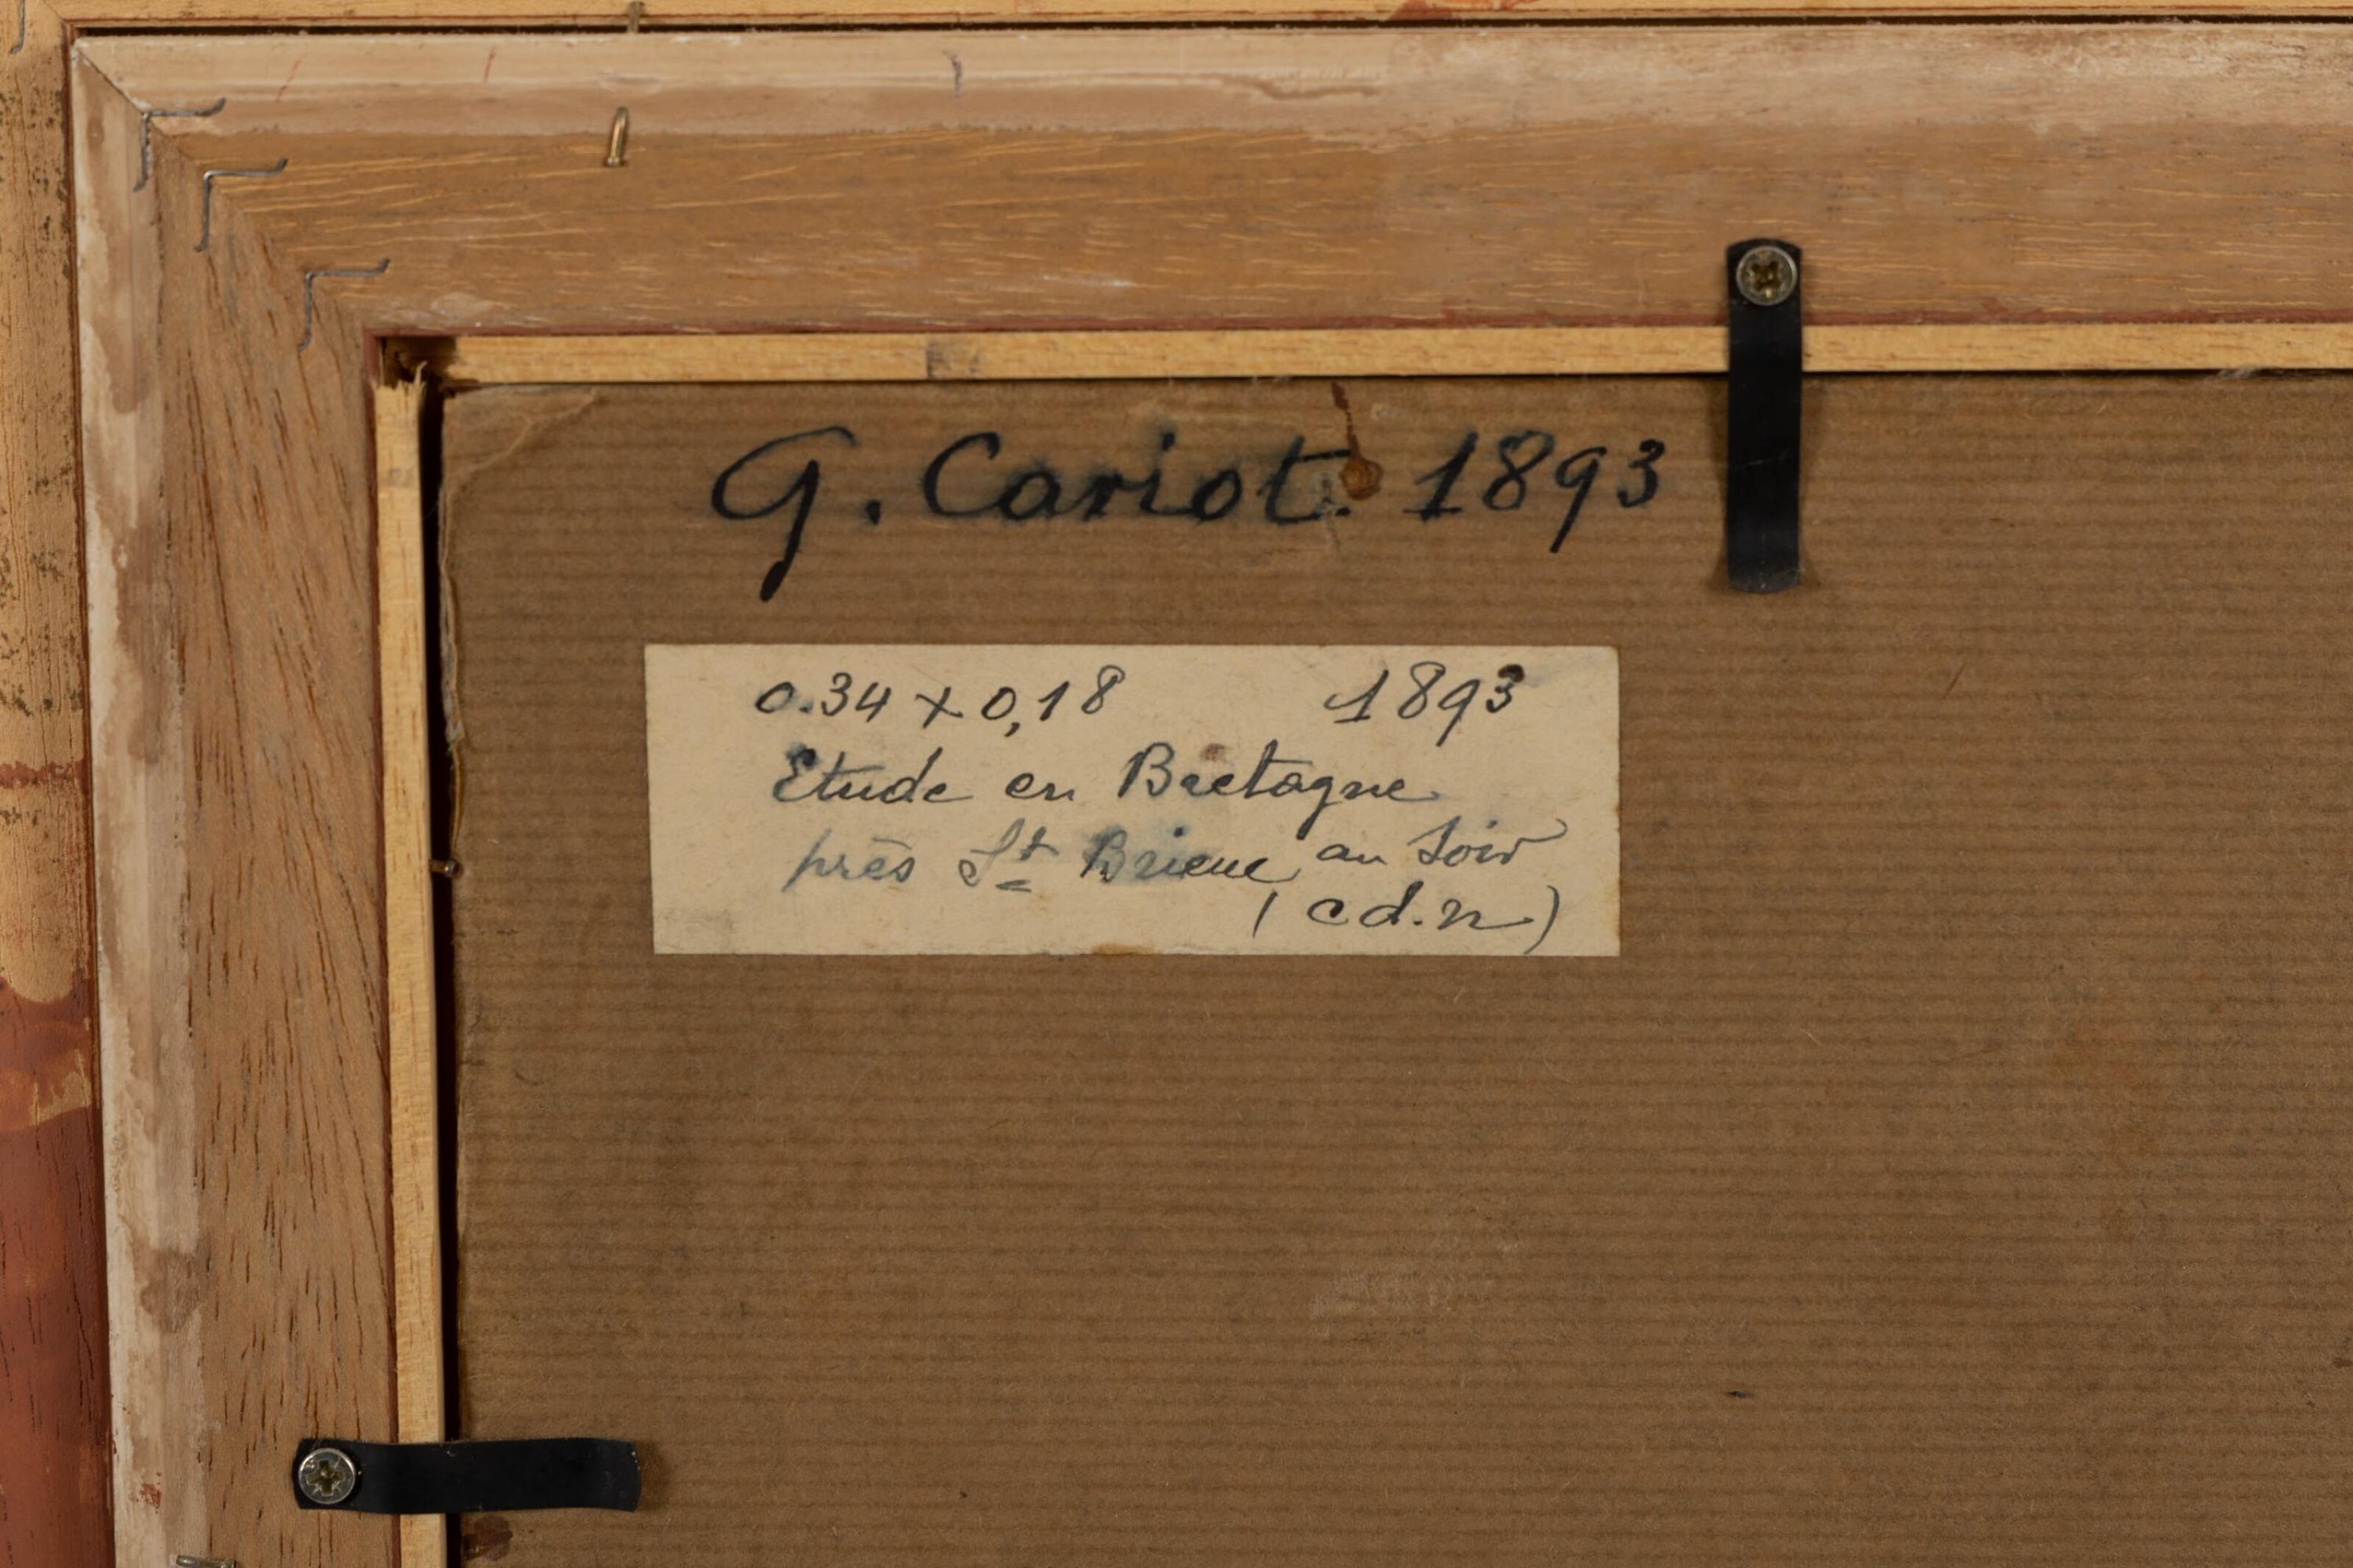 G. Cariot. 1893
0.34 x 0,18 1893
Etude en Bretagne
près St Brieuc au Soir
(cd.n)